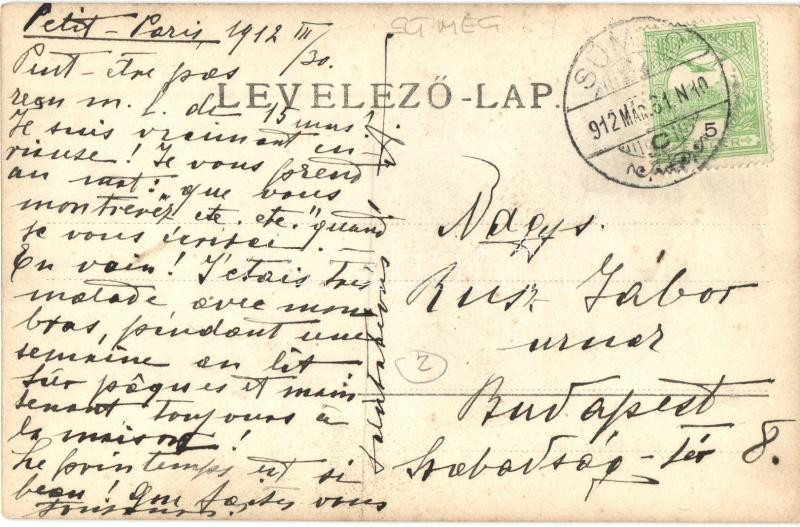 Petit-Paris, 1912 III/30.
Peut-être pas
reçu m. l. de 15 mars!
Je suis vraiment cu
rieuse! Je vous prend
au mot: que vous
montrevez etc. etc. "quand
je vous écrirai!
En vain! J'étais très
malade avec mon
bras, pendant une
semaine au lit
sur pâques et main
tenant toujours à
la maison!
Le printemps est si
beau! Que faites vous
toujours?
EG MEG
LEVELEZŐ-LAP.
SÜM
912 MÁR. 31. N 10
C
5
Nagys.
Rusz Gábor
urnar
Budapest
Szabadság-tér 8.
2